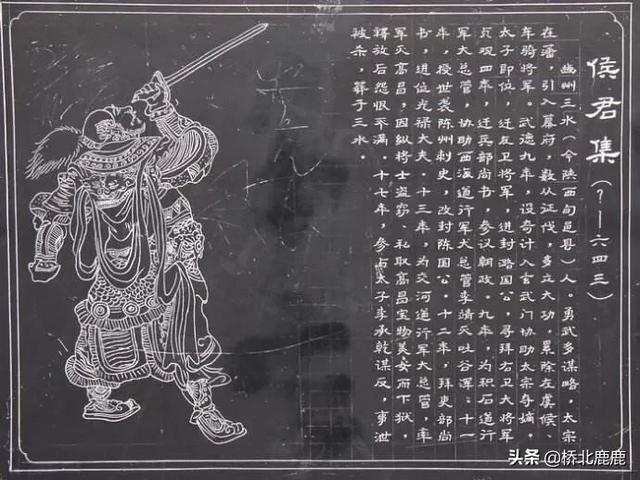 侯君集(?—六四三)
豳州三水(今陕西旬邑县)人。勇武多谋略,太宗
在藩,引入幕府,数从征伐,多立大功,累除左虞候、
车骑将军。武德九年,设奇计入玄武门协助太宗夺嫡,
太子即位,迁左卫将军,进封潞国公,寻拜右卫大将军
贞观四年,迁兵部尚书,参议朝政。九年,为积石道行
军大总管,协助西海道行军大总管李靖灭吐谷浑。十一
年,授世袭陈州刺史,改封陈国公。十二年,拜吏部尚
书,进位光禄大夫。十三年,为交河道行军大总管,率
军灭高昌,因纵将士盗窃、私取高昌宝物美女而下狱,
释放后怨恨不满。十七年,参与太子李承乾谋反,事泄
被杀,葬于三水。
头条 @桥北鹿鹿